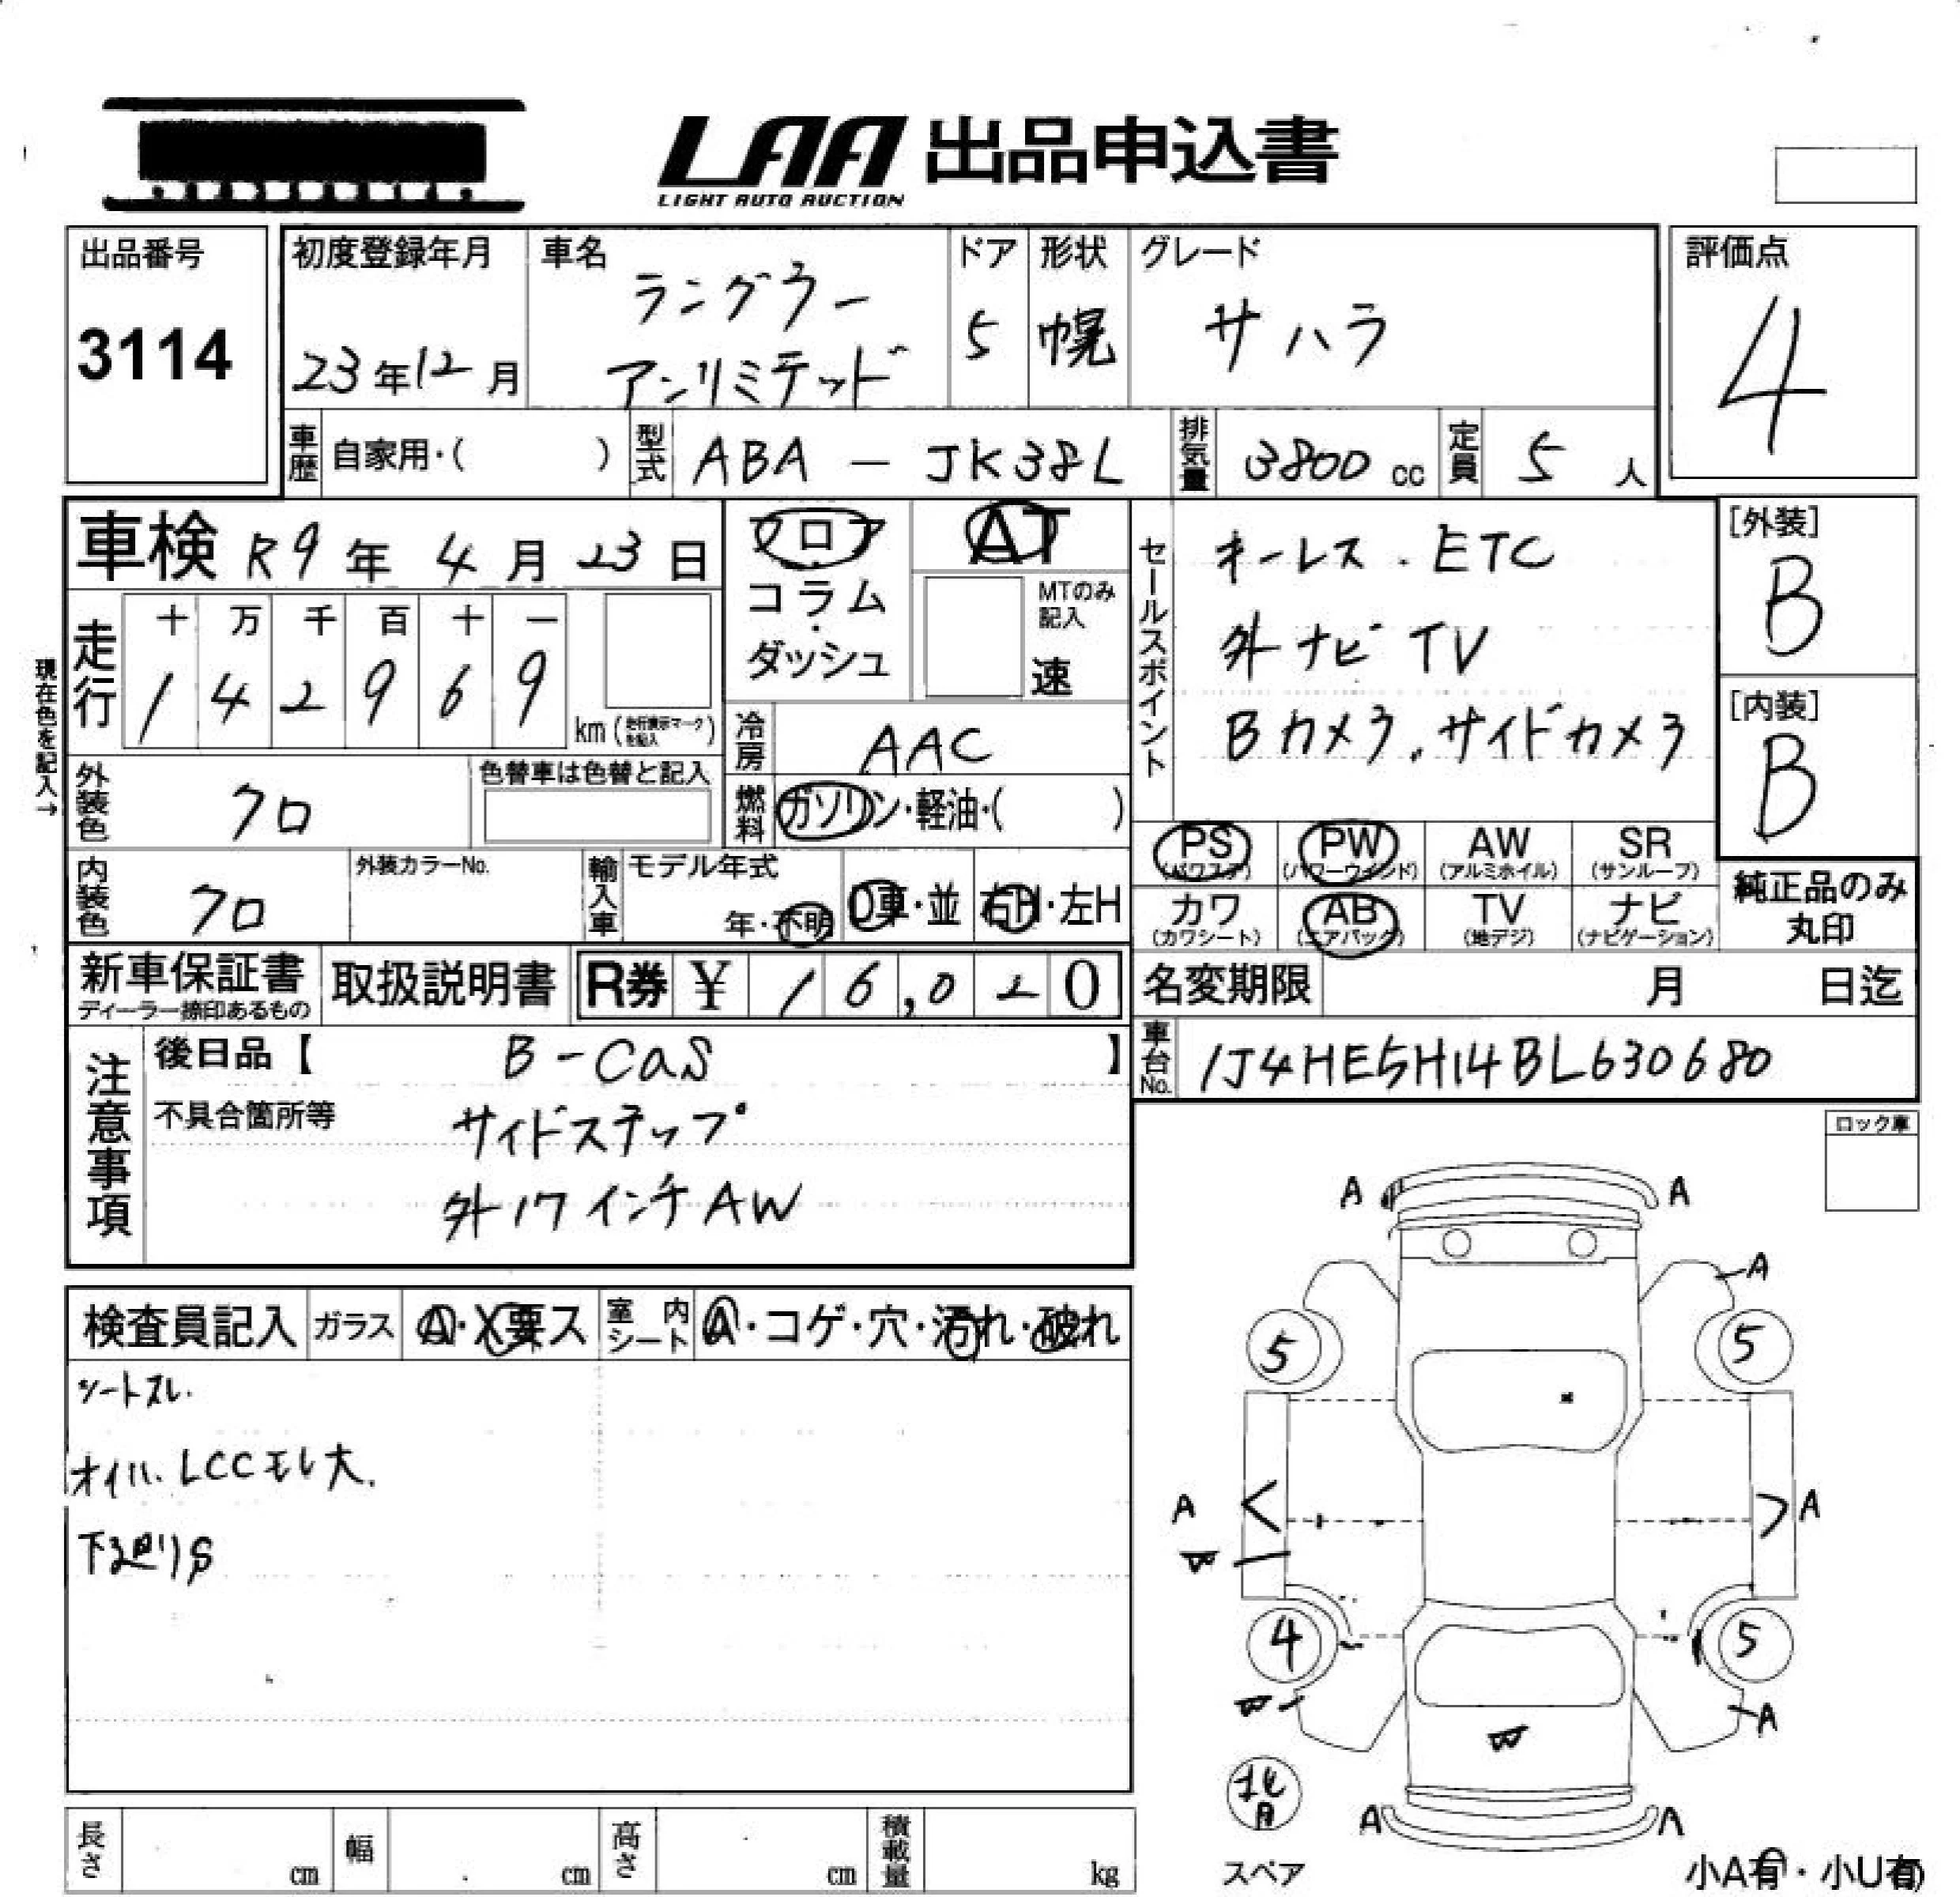 LAA 出品申込書
LIGHT AUTO AUCTION
出品番号
3114
初度登録年月
23年12月
車名
ラングラー
アンリミテッド
ドア
5
形状
幌
グレード
サハラ
評価点
4
車歴 自家用・( )
型式 ABA - JK38L
排気量 3800 cc
定員 5 人
車検 R9年4月23日
フロア
コラム
・
ダッシュ
AT
MTのみ
記入
速
セールスポイント
キーレス.ETC
外ナビTV
Bカメラ.サイドカメラ
[外装]
B
[内装]
B
現在色を記入→
走行
十 万 千 百 十 一
1 4 2 9 6 9
km (走行表示マークを記入)
冷房 AAC
燃料 ガソリン・軽油・( )
外装色 クロ
色替車は色替と記入
内装色 クロ
外装カラーNo.
輸入車
モデル年式
年・不明
D車・並
右H・左H
PS (パワステ)
PW (パワーウインド)
AW (アルミホイル)
SR (サンルーフ)
カワ (カワシート)
AB (エアバック)
TV (地デジ)
ナビ (ナビゲーション)
純正品のみ
丸印
新車保証書
ディーラー捺印あるもの
取扱説明書
R券 ¥ 16,020
名変期限 月 日迄
車台No. 1J4HE5H14BL630680
注意事項
後日品【 B-CaS 】
不具合箇所等
サイドステップ
外17インチAW
ロック車
検査員記入
ガラス A・X要ス
室内シート A・コゲ・穴・汚れ・破れ
シートスレ.
オイル.LCCモレ大.
下廻りS
A A
A
5 5
A A
W
4 5
W A
W
A A
スペア
小A有・小U有
長さ cm
幅 cm
高さ cm
積載量 kg